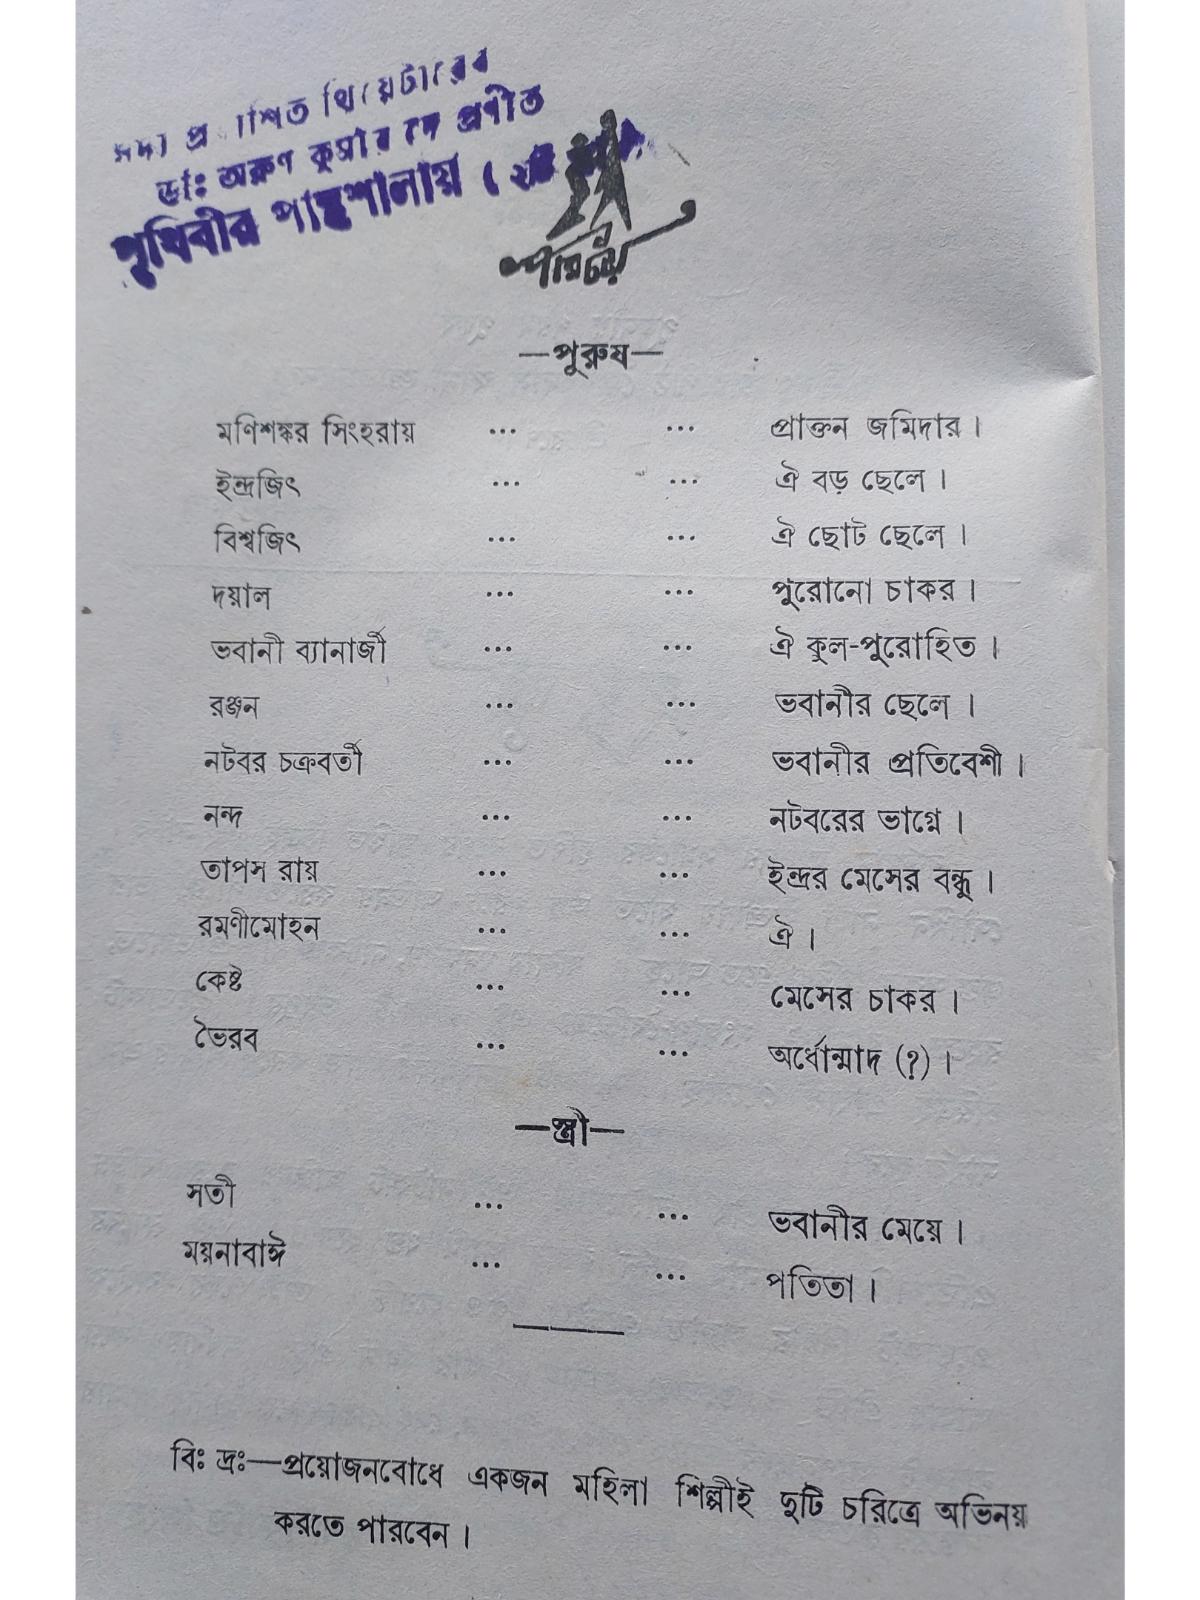 সদ্য প্রকাশিত থিয়েটারের
ডাঃ অরুণ কুমার দে প্রণীত
পৃথিবীর পান্থশালায় (
পরিচয়
—পুরুষ—
মণিশঙ্কর সিংহরায় ... ... প্রাক্তন জমিদার।
ইন্দ্রজিৎ ... ... ঐ বড় ছেলে।
বিশ্বজিৎ ... ... ঐ ছোট ছেলে।
দয়াল ... ... পুরোনো চাকর।
ভবানী ব্যানার্জী ... ... ঐ কুল-পুরোহিত।
রঞ্জন ... ... ভবানীর ছেলে।
নটবর চক্রবর্তী ... ... ভবানীর প্রতিবেশী।
নন্দ ... ... নটবরের ভাগ্নে।
তাপস রায় ... ... ইন্দ্রর মেসের বন্ধু।
রমণীমোহন ... ... ঐ।
কেষ্ট ... ... মেসের চাকর।
ভৈরব ... ... অর্ধোন্মাদ (?)।
—স্ত্রী—
সতী ... ... ভবানীর মেয়ে।
ময়নাবাঈ ... ... পতিতা।
বিঃ দ্রঃ—প্রয়োজনবোধে একজন মহিলা শিল্পীই দুটি চরিত্রে অভিনয়
করতে পারবেন।